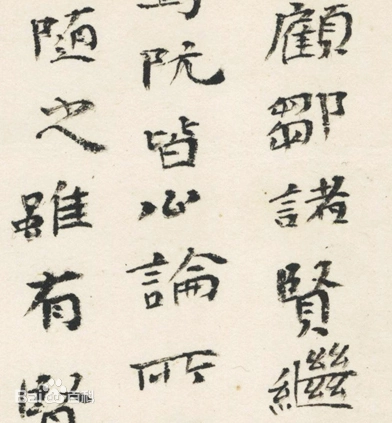 顧鄒諸賢繼
阮皆公論所
隨之雖有
Baidu百科